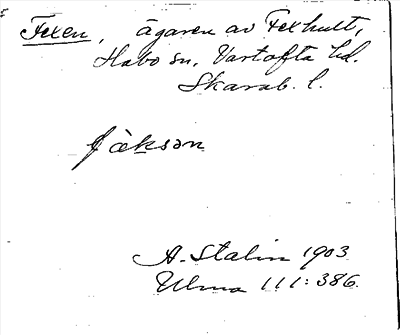 Fexen, ägaren av Fexhult,
Habo sn, Vartofta hd.
Skarab. l.
fäksən
A. Stalin 1903
Ulma 111:386.